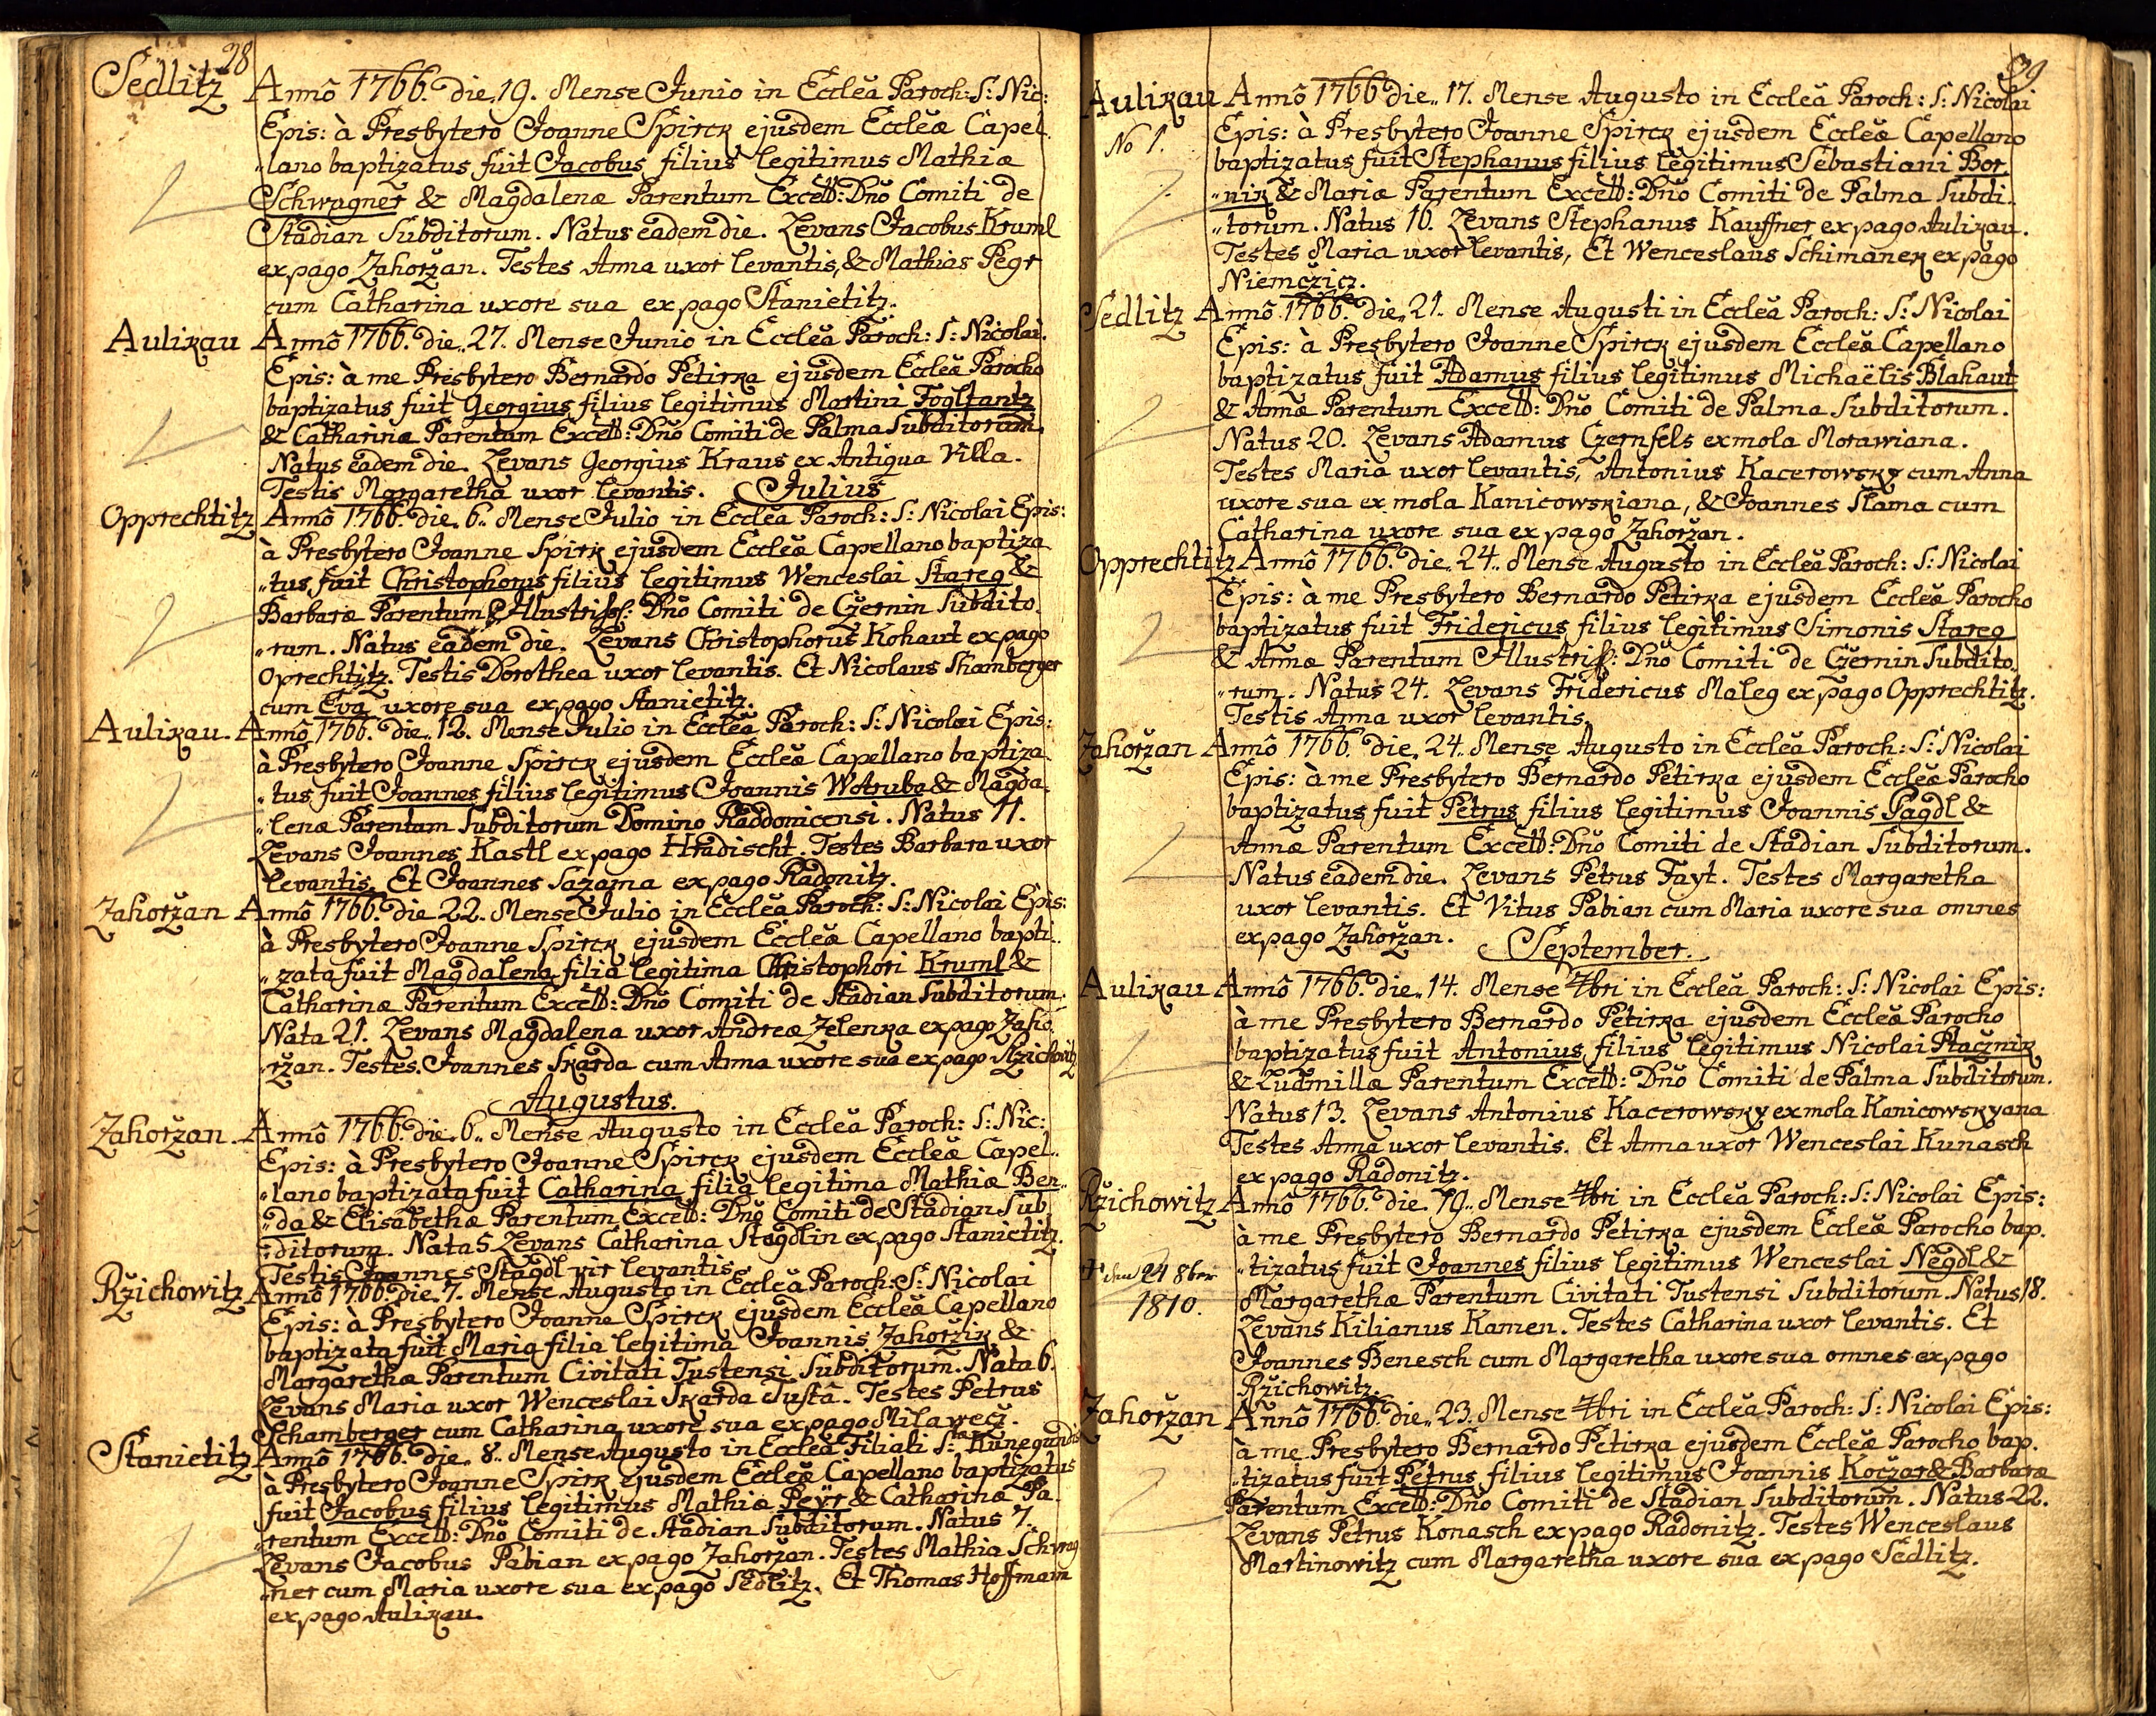 28
Sedlitz Annô 1766. die, 19. Mense Junio in Eccleâ Paroch: S: Nic:
Epis: à Presbytero Joanne Spirck ejusdem Eccleæ Capel-
„lano baptizatus fuit Jacobus filius legitimus Mathiæ
Schwagner & Magdalenæ Parentum Excell: Dnõ Comiti de
Stadian Subditorum. Natus eadem die. Levans Jacobus Kruml
ex pago Zahoržan. Testes Anna uxor levantis, & Mathias Pegr
cum Catharina uxore sua ex pago Stanietitz.
Aulikau Annô 1766. die„ 27. Mense Junio in Ecclea Paroch: S: Nicolai.
Epis: à me Presbytero Bernardo Petirka ejusdem Eccleæ Parocho
baptizatus fuit Georgius filius legitimus Martini Fogltantz
& Catharinæ Parentum Excell: Dnõ Comiti de Palma Subditorum.
Natus eadem die. Levans Georgius Kraus ex Antiqua Villa.
Testis Margaretha uxor levantis. Julius
Opprechtitz Annô 1766. die. 6„ Mense Julio in Ecclea Paroch: S: Nicolai Epis:
à Presbytero Joanne Spirk ejusdem Eccleæ Capellano baptiza
„tus fuit Christophorus filius legitimus Wenceslai Stareg &
Barbaræ Parentum Illustriss: Dnõ Comiti de Czernin Subdito.
„rum. Natus eadem die. Levans Christophorus Kohaut ex pago
Oprechtitz. Testis Dorothea uxor levantis. Et Nicolaus Shamberger
cum Eva uxore sua ex pago Stanietitz.
Aulikau. Annô 1766. die„ 12. Mense Julio in Ecclea Paroch: S: Nicolai Epis:
à Presbytero Joanne Spirck ejusdem Eccleæ Capellano baptiza.
„tus fuit Joannes filius legitimus Joannis Wotruba & Magda.
„lenæ Parentum Subditorum Domino Raddonicensi. Natus 11.
Levans Joannes Kastl ex pago Hradischt. Testes Barbara uxor
levantis. Et Joannes Sazama ex pago Radonitz.
Zahoržan Annô 1766. die 22. Mense Julio in Ecclea Paroch: S: Nicolai Epis:
à Presbytero Joanne Spirck ejusdem Eccleæ Capellano bapti„
„zata fuit Magdalena filia legitima Christophori Kruml &
Catharinæ Parentum Excell: Dnõ Comiti de Stadian Subditorum.
Nata 21. Levans Magdalena uxor Andreæ Zelenka ex pago Zaho
„ržan. Testes. Joannes Skarda cum Anna uxore sua ex pago Ržichowitz
Augustus.
Zahoržan. Annô 1766. die. 6„ Mense Augusto in Ecclea Paroch: S: Nic:
Epis: à Presbytero Joanne Spirck ejusdem Eccleæ Capel„
„lano baptizata fuit Catharina filia legitima Mathiæ Ben„
„da & Elisabethæ Parentum Excell: Dnõ Comiti de Stadian Sub„
„ditorum. Nata 5. Levans Catharina Stagdlin ex pago Stanietitz.
Testis Joannes Stagdl vir levantis
Ržichowitz Annô 1766. die. 7. Mense Augusto in Ecclea Paroch: S: Nicolai
Epis: à Presbytero Joanne Spirck ejusdem Eccleæ Capellano
baptizata fuit Maria filia legitima Joannis Zahoržik &
Margarethæ Parentum Civitati Tustensi Subditorum. Nata 6.
Levans Maria uxor Wenceslai Skarda Tustâ. Testes Petrus
Schamberger cum Catharina uxore sua ex pago Milawecž.
Stanietitz Annô 1766. die„ 8. Mense Augusto in Ecclea Filiali S: Kunegundis
à Presbytero Joanne Spirk ejusdem Eccleæ Capellano baptizatus
fuit Jacobus filius legitimus Mathiæ Peÿr & Catharinæ Pa.
„rentum Excell: Dnõ Comiti de Stadian Subditorum. Natus 7.
Levans Jacobus Pabian ex pago Zahoržan. Testes Mathia Schwag
„ner cum Maria uxore sua ex pago Sedlitz. Et Thomas Hoffmann
ex pago Aulikau.
39
Aulikau Annô 1766 die„ 17. Mense Augusto in Ecclea Paroch: S: Nicolai
No 1. Epis: à Presbytero Joanne Spirck ejusdem Eccleæ Capellano
baptizatus fuit Stephanus filius legitimus Sebastiani Bor„
„nik & Mariæ Parentum Excell: Dnõ Comiti de Palma Subdi.
„torum. Natus 16. Levans Stephanus Kauffner ex pago Aulikau.
Testes Maria uxor levantis, Et Wenceslaus Schimanek ex pago
Niemcžicz.
Sedlitz Annô 1766. die„ 21. Mense Augusti in Ecclea Paroch: S: Nicolai
Epis: à Presbytero Joanne Spirck ejusdem Eccleæ Capellano
baptizatus fuit Adamus filius legitimus Michaëlis Blahaut
& Annæ Parentum Excell: Dnõ Comiti de Palma Subditorum.
Natus 20. Levans Adamus Czernfels ex mola Morawiana.
Testes Maria uxor levantis, Antonius Kacerowsky cum Anna
uxore sua ex mola Kanicowskiana, & Joannes Slama cum
Catharina uxore sua ex pago Zahoržan.
Opprechtitz Annô 1766. die„ 24. Mense Augusto in Ecclea Paroch: S: Nicolai
Epis: à me Presbytero Bernardo Petirka ejusdem Eccleæ Parocho
baptizatus fuit Fridericus filius legitimus Simonis Stareg
& Annæ Parentum Illustriss: Dnõ Comiti de Czernin Subdito„
„rum. Natus 24. Levans Fridericus Maleg ex pago Opprechtitz.
Testis Anna uxor levantis.
Zahoržan Annô 1766. die„ 24. Mense Augusto in Ecclea Paroch: S: Nicolai
Epis: à me Presbytero Bernardo Petirka ejusdem Eccleæ Parocho
baptizatus fuit Petrus filius legitimus Joannis Pagdl &
Annæ Parentum Excell: Dnõ Comiti de Stadian Subditorum.
Natus eadem die. Levans Petrus Fayt. Testes Margaretha
uxor levantis. Et Vitus Pabian cum Maria uxore sua omnes
ex pago Zahoržan. September.
Aulikau Annô 1766. die„ 14. Mense 7bri in Ecclea Paroch: S: Nicolai Epis:
à me Presbytero Bernardo Petirka ejusdem Eccleæ Parocho
baptizatus fuit Antonius filius legitimus Nicolai Ptacžnik
& Ludmillæ Parentum Excell: Dnõ Comiti de Palma Subditorum.
Natus 13. Levans Antonius Kacerowsky ex mola Kanicowskyana
Testes Anna uxor levantis. Et Anna uxor Wenceslai Kunasch
ex pago Radonitz.
Ržichowitz Annô 1766. die. 19„ Mense 7bri in Ecclea Paroch: S: Nicolai Epis:
à me Presbytero Bernardo Petirka ejusdem Eccleæ Parocho bap.
† den 24 8ber „tizatus fuit Joannes filius legitimus Wenceslai Negdl &
1810. Margarethæ Parentum Civitati Tustensi Subditorum. Natus 18.
Levans Kilianus Kamen. Testes Catharina uxor levantis. Et
Joannes Benesch cum Margaretha uxore sua omnes ex pago
Ržichowitz.
Zahoržan Annô 1766. die„ 23. Mense 7bri in Ecclea Paroch: S: Nicolai Epis:
à me Presbytero Bernardo Petirka ejusdem Eccleæ Parocho bap.
„tizatus fuit Petrus filius legitimus Joannis Kocžar & Barbaræ
Parentum Excell: Dnõ Comiti de Stadian Subditorum. Natus 22.
Levans Petrus Konasch ex pago Radonitz. Testes Wenceslaus
Martinowitz cum Margaretha uxore sua ex pago Sedlitz.